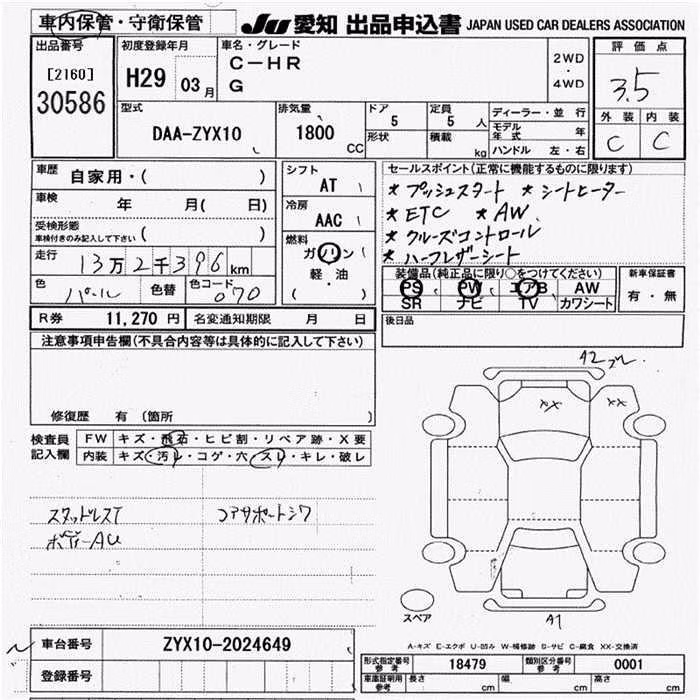 車内保管・守衛保管
JU 愛知 出品申込書 JAPAN USED CAR DEALERS ASSOCIATION
出品番号
[2160]
30586
初度登録年月
H29 03月
車名・グレード
C-HR
G
2WD
・
4WD
評価点
3.5
外装 内装
C C
型式
DAA-ZYX10
排気量
1800 CC
ドア
5
形状
定員
5 人
積載
kg
ディーラー・並行
モデル年式 年
ハンドル 左・右
車歴
自家用・( )
車検 年 月( 日)
受検形態
車検付きのみ記入して下さい ( )
走行 13万2千396km
色 パール 色替 色コード 070
シフト
AT
冷房
AAC
燃料
ガソリン
軽・油
( )
セールスポイント(正常に機能するものに限ります)
★ プッシュスタート ★ シートヒーター
★ ETC ★ AW
★ クルーズコントロール
★ ハーフレザーシート
装備品(純正品に限り○をつけてください)
PS PW エアB AW
SR ナビ TV カワシート
新車保証書
有・無
R券 11,270円 名変通知期限 月 日
後日品
注意事項申告欄(不具合内容等は具体的に記入して下さい)
修復歴 有(箇所 )
検査員記入欄
FW キズ・飛石・ヒビ割・リペア跡・X要
内装 キズ・汚レ・コゲ・穴・スレ・キレ・破レ
スタッドレスT
ボディーAU
コアサポートシワ
A2
XX
XX
A1
スペア
A-キズ E-エクボ U-凹み W-補修跡 S-サビ C-腐食 XX-交換済
車台番号 ZYX10-2024649
登録番号
形式指定番号参考 18479 類別区分番号参考 0001
車庫証明用参考 長さ cm 幅 cm 高さ cm